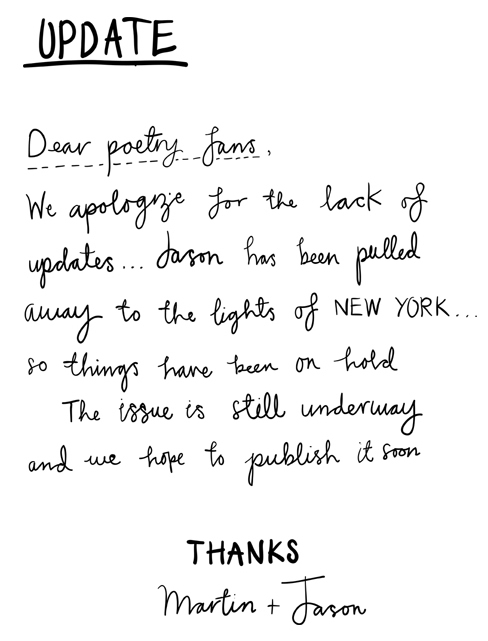 UPDATE
Dear poetry fans,
We apologize for the lack of
updates... Jason has been pulled
away to the lights of NEW YORK...
so things have been on hold
The issue is still underway
and we hope to publish it soon
THANKS
Martin + Jason